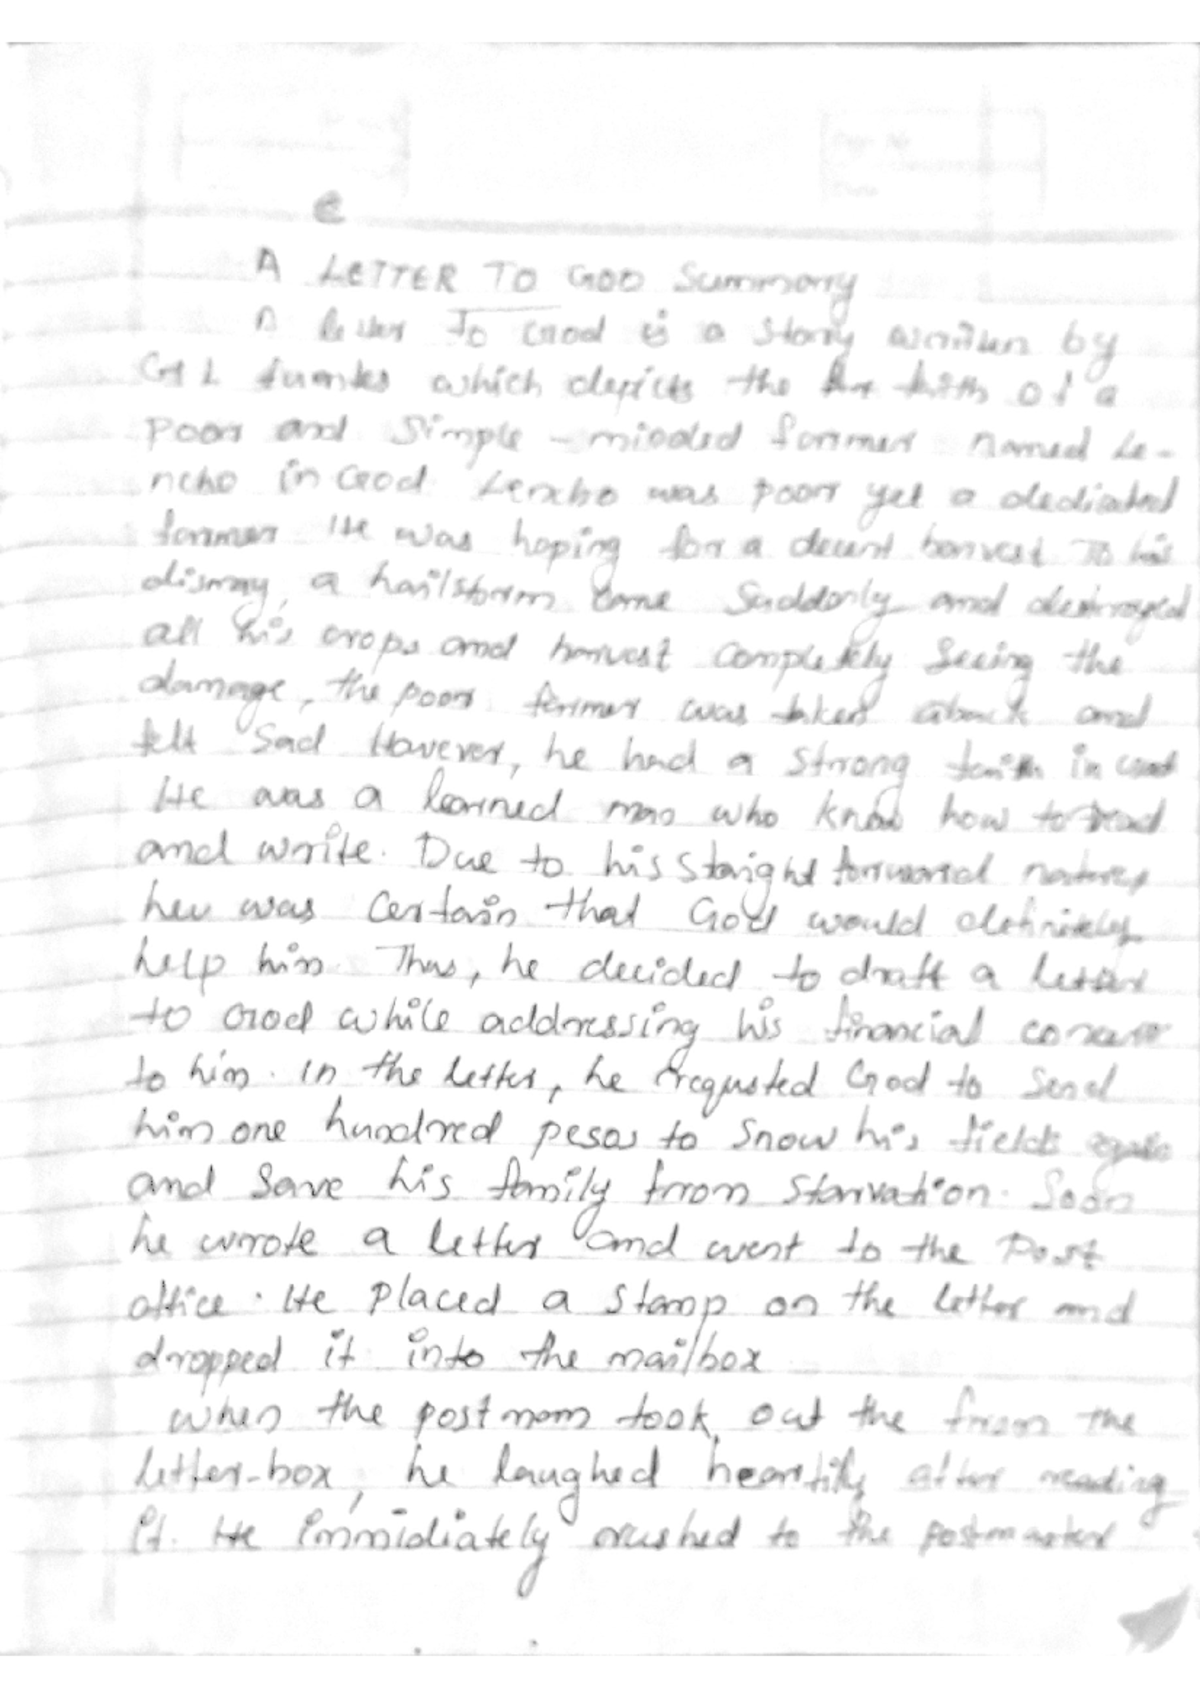 e
A LETTER TO GOD Summary
A letter To God is a story written by
G L fuentes which depicts the faith of a
poor and Simple-minded farmer named Le-
ncho in God Lencho was poor yet a dedicated
farmer He was hoping for a decent harvest To his
dismay, a hailstorm came Suddonly and destroyed
all his crops and harvest completely Seeing the
damage, the poor farmer was taken aback and
felt Sad However, he had a strong faith in God
He was a learned man who know how to read
and write. Due to his Staight forward nature,
heu was Certain that God would definitely
help him. Thus, he decided to draft a letter
to God while addressing his financial
to him. In the letter, he requsted God to Send
him one hundred pesos to Snow his fields again
and Save his family from Starvation. Soon
he wrote a letter and went to the Post
office. He placed a stamp on the letter and
dropped it into the mailbox
when the postmom took out the from the
letter-box, he laughed heartily after reading
it. He immidiately rushed to the postmaster